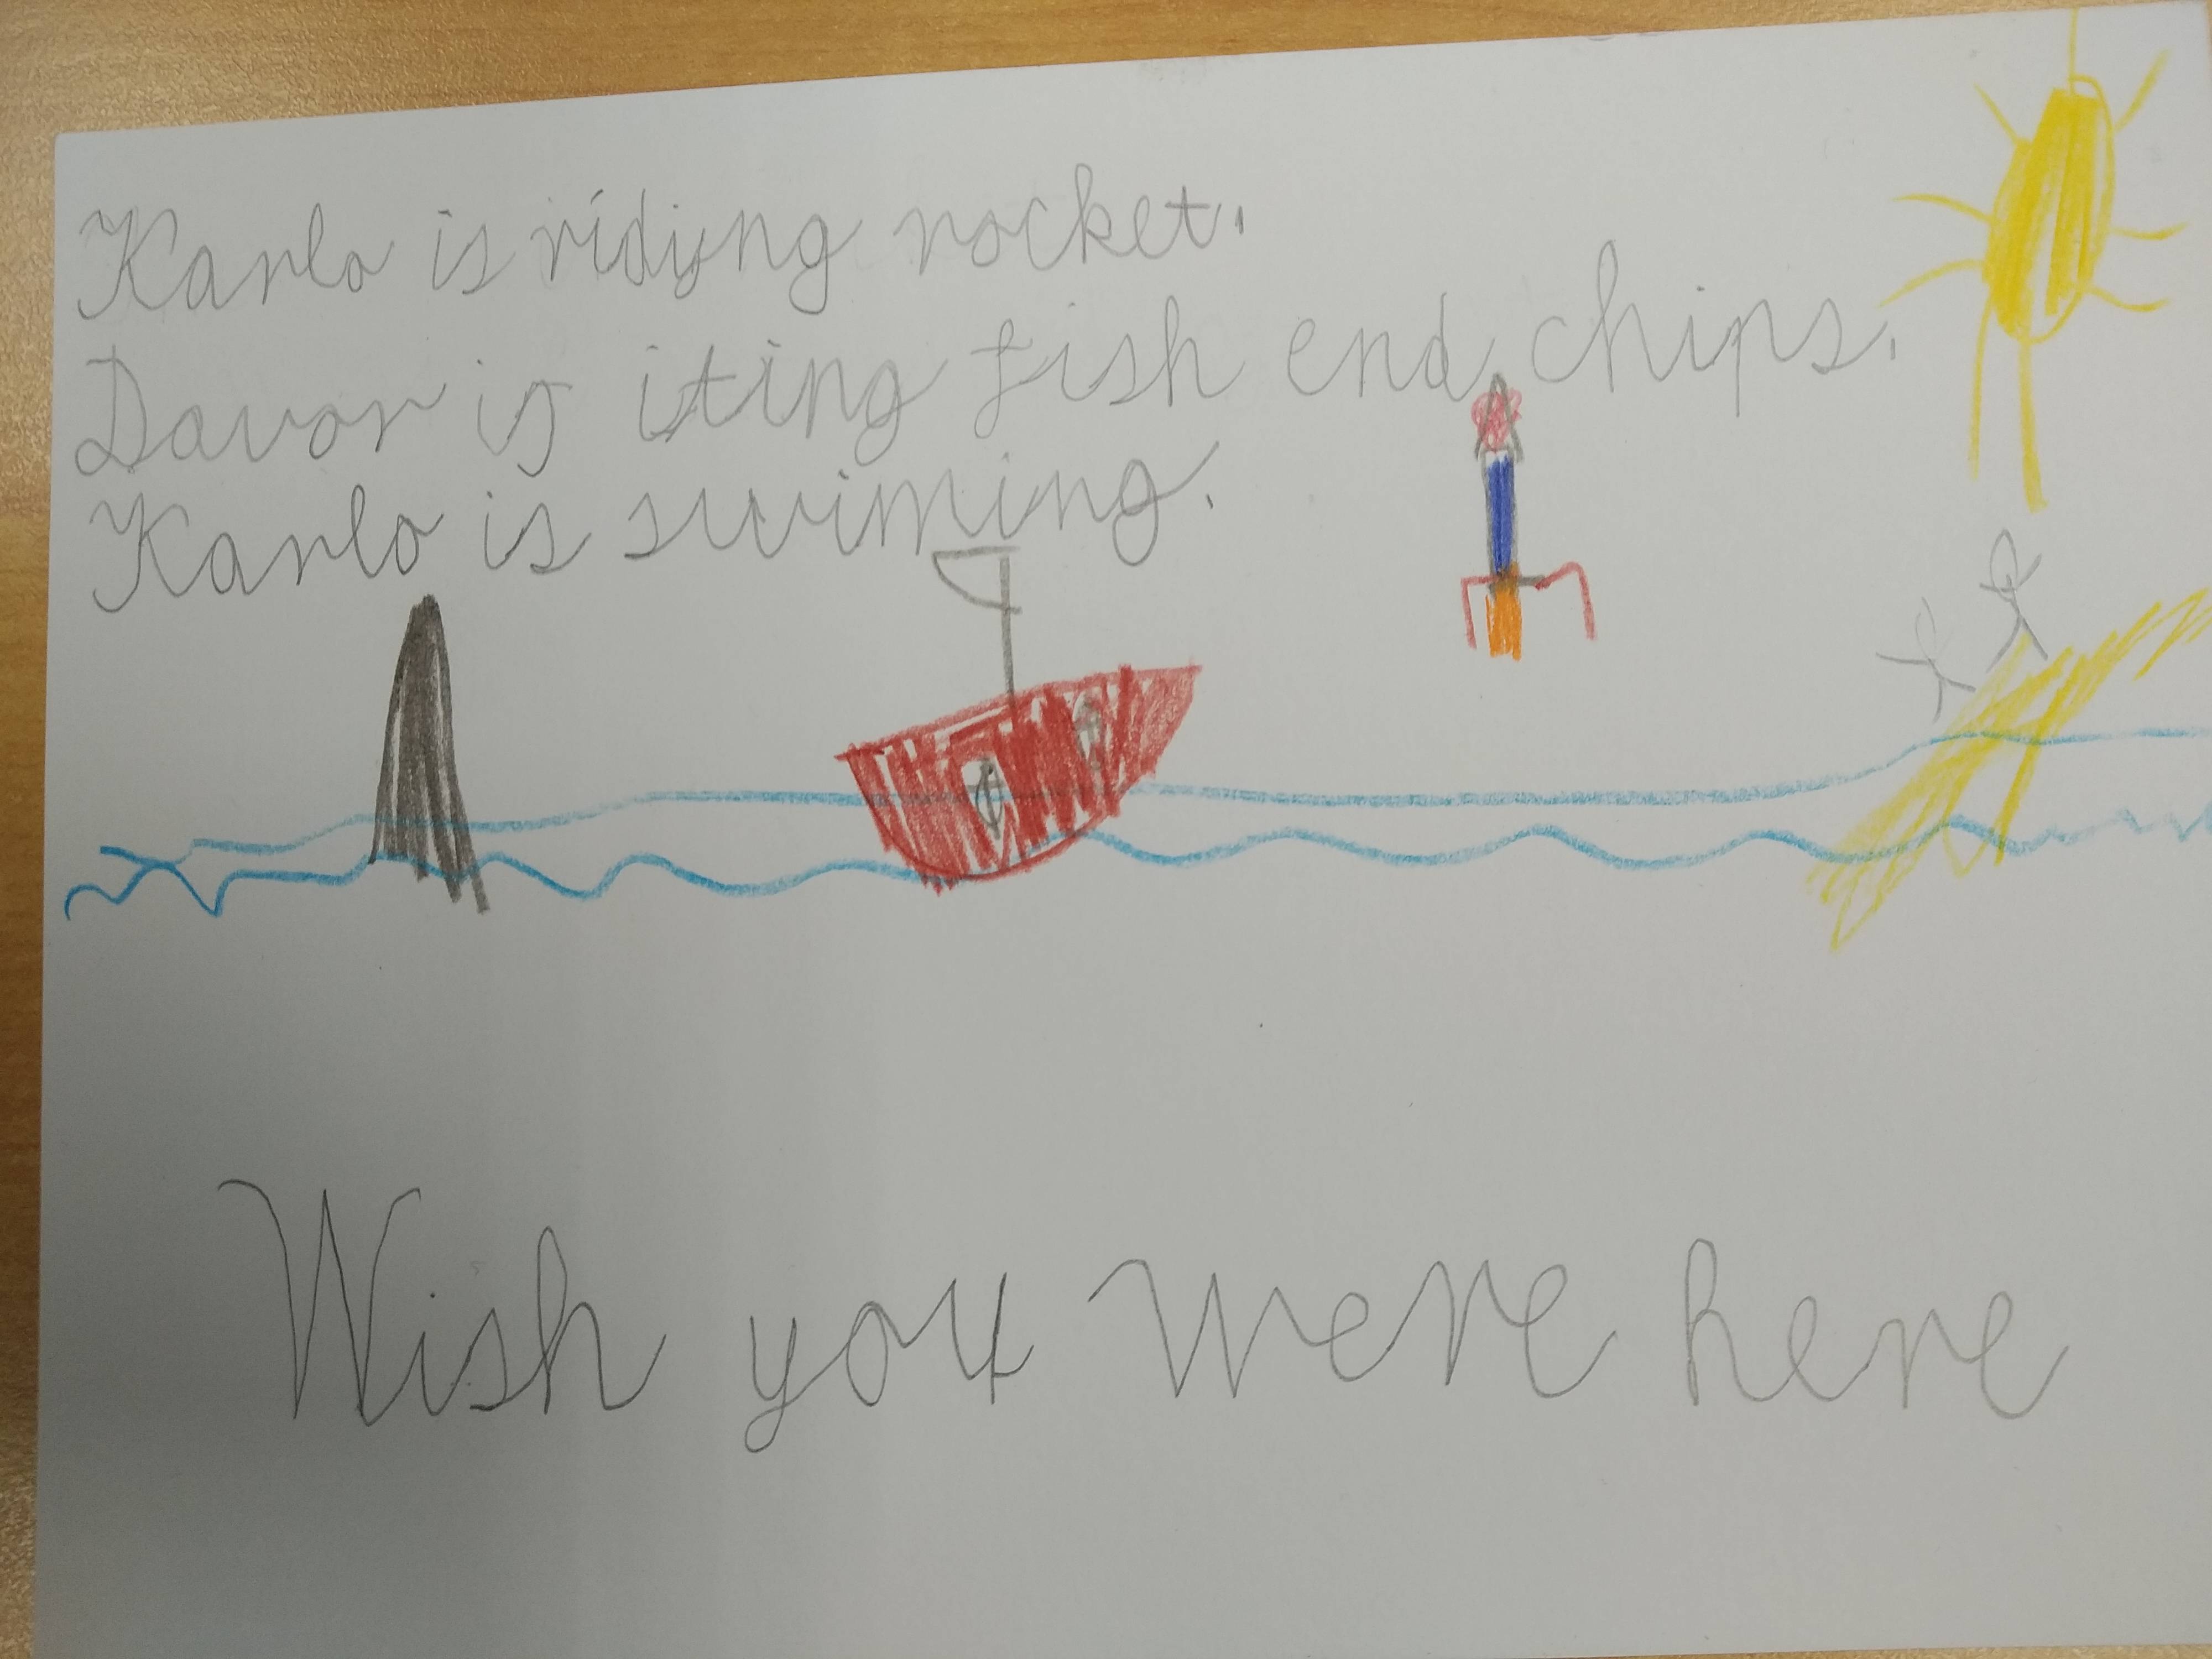 Karlo is ridyng rocket.
Davor is iting fish end chips.
Karlo is swiming.
Wish you were here